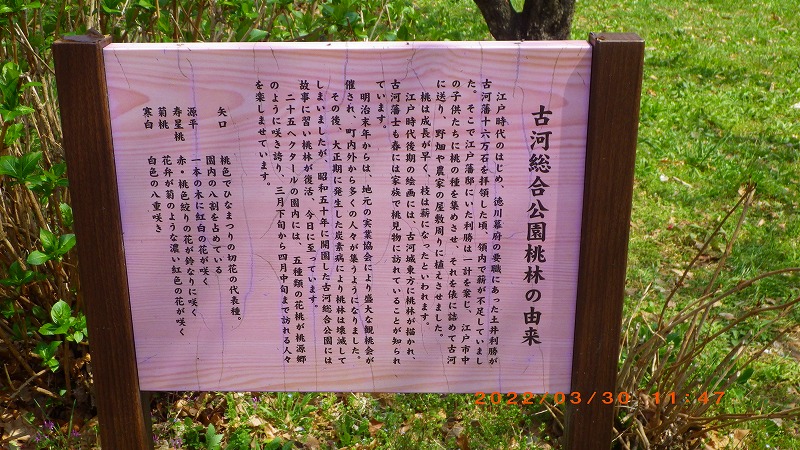 古河総合公園桃林の由来
江戸時代のはじめ、徳川幕府の要職にあった土井利勝が
古河藩十六万石を拝領した頃、領内で薪が不足していまし
た。そこで江戸藩邸にいた利勝は一計を案じ、江戸市中
の子供たちに桃の種を集めさせ、それを俵に詰めて古河
に送り、野畑や農家の屋敷周りに植えさせました。
桃は成長が早く、枝は薪になったといわれます。
江戸時代後期の絵画には、古河城東方に桃林が描かれ、
古河藩士も春には家族で桃見物に訪れていることが知られ
ています。
明治末年からは、地元の実業協会により盛大な観桃会が
催され、町内外から多くの人々が集うようになりました。
その後、大正期に発生した炭素病により桃林は壊滅して
しまいましたが、昭和五十年に開園した古河総合公園には
故事に習い桃林が復活、今日に至っています。
二十五ヘクタールの園内には、五種類の花桃が桃源郷
のように咲き誇り、三月下旬から四月中旬まで訪れる人々
を楽しませています。
矢口 桃色でひなまつりの切花の代表種。
園内の八割を占めている
源平 一本の木に紅白の花が咲く
寿星桃 赤・桃色絞りの花が鈴なりに咲く
菊桃 花弁が菊のような濃い紅色の花が咲く
寒白 白色の八重咲き
2022/03/30 11:47